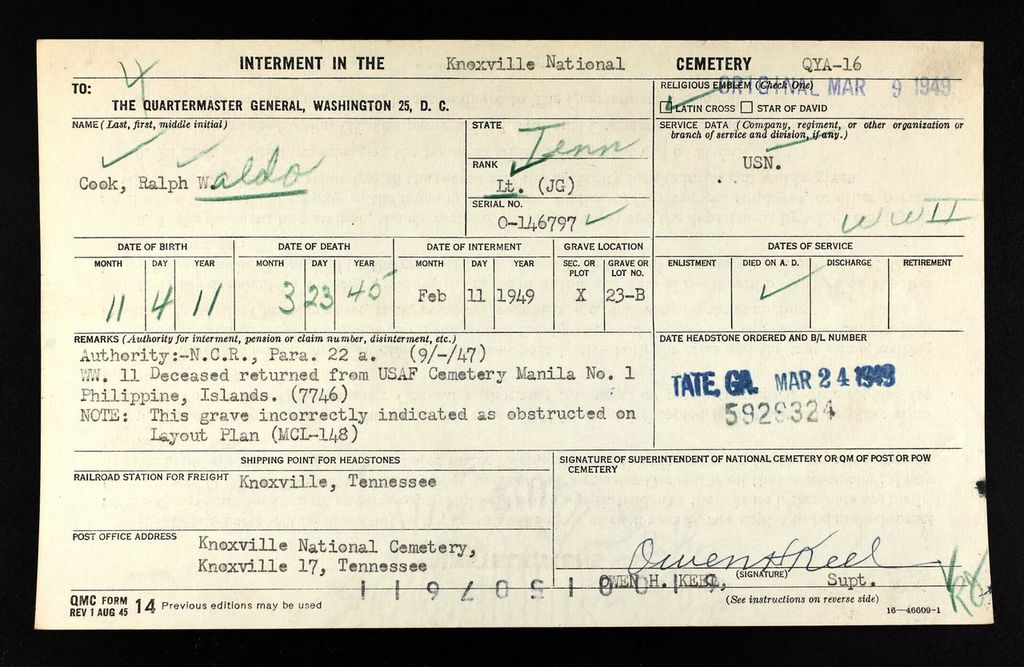 INTERMENT IN THE Knoxville National CEMETERY QYA-16
4
TO:
THE QUARTERMASTER GENERAL, WASHINGTON 25, D. C.
RELIGIOUS EMBLEM (Check One)
ORIGINAL MAR 9 1949
LATIN CROSS STAR OF DAVID
NAME (Last, first, middle initial)
Cook, Ralph Waldo
STATE Tenn
RANK
Lt. (JG)
SERIAL NO.
O-146797
SERVICE DATA (Company, regiment, or other organization or branch of service and division, if any.)
USN.
WWII
DATE OF BIRTH DATE OF DEATH DATE OF INTERMENT GRAVE LOCATION DATES OF SERVICE
MONTH DAY YEAR MONTH DAY YEAR MONTH DAY YEAR SEC. OR PLOT GRAVE OR LOT NO. ENLISTMENT DIED ON A. D. DISCHARGE RETIREMENT
11 4 11 3 23 45 Feb 11 1949 X 23-B
REMARKS (Authority for interment, pension or claim number, disinterment, etc.)
Authority:-N.C.R., Para. 22 a. (9/-/47)
WW. 11 Deceased returned from USAF Cemetery Manila No. 1
Philippine, Islands. (7746)
NOTE: This grave incorrectly indicated as obstructed on
Layout Plan (MCL-148)
DATE HEADSTONE ORDERED AND B/L NUMBER
TATE, GA. MAR 24 1949
5929324
SHIPPING POINT FOR HEADSTONES
RAILROAD STATION FOR FREIGHT Knoxville, Tennessee
POST OFFICE ADDRESS Knoxville National Cemetery,
Knoxville 17, Tennessee
SIGNATURE OF SUPERINTENDENT OF NATIONAL CEMETERY OR QM OF POST OR POW
CEMETERY
Owen H Keel
OWEN H. KEEL, (SIGNATURE) Supt.
(See instructions on reverse side)
QMC FORM 14 Previous editions may be used
REV 1 AUG 45
16—46609-1